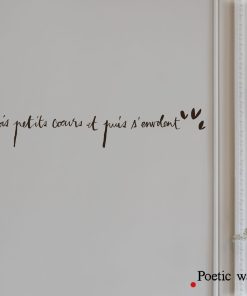 petits cœurs et puis s'envolent
Poetic w